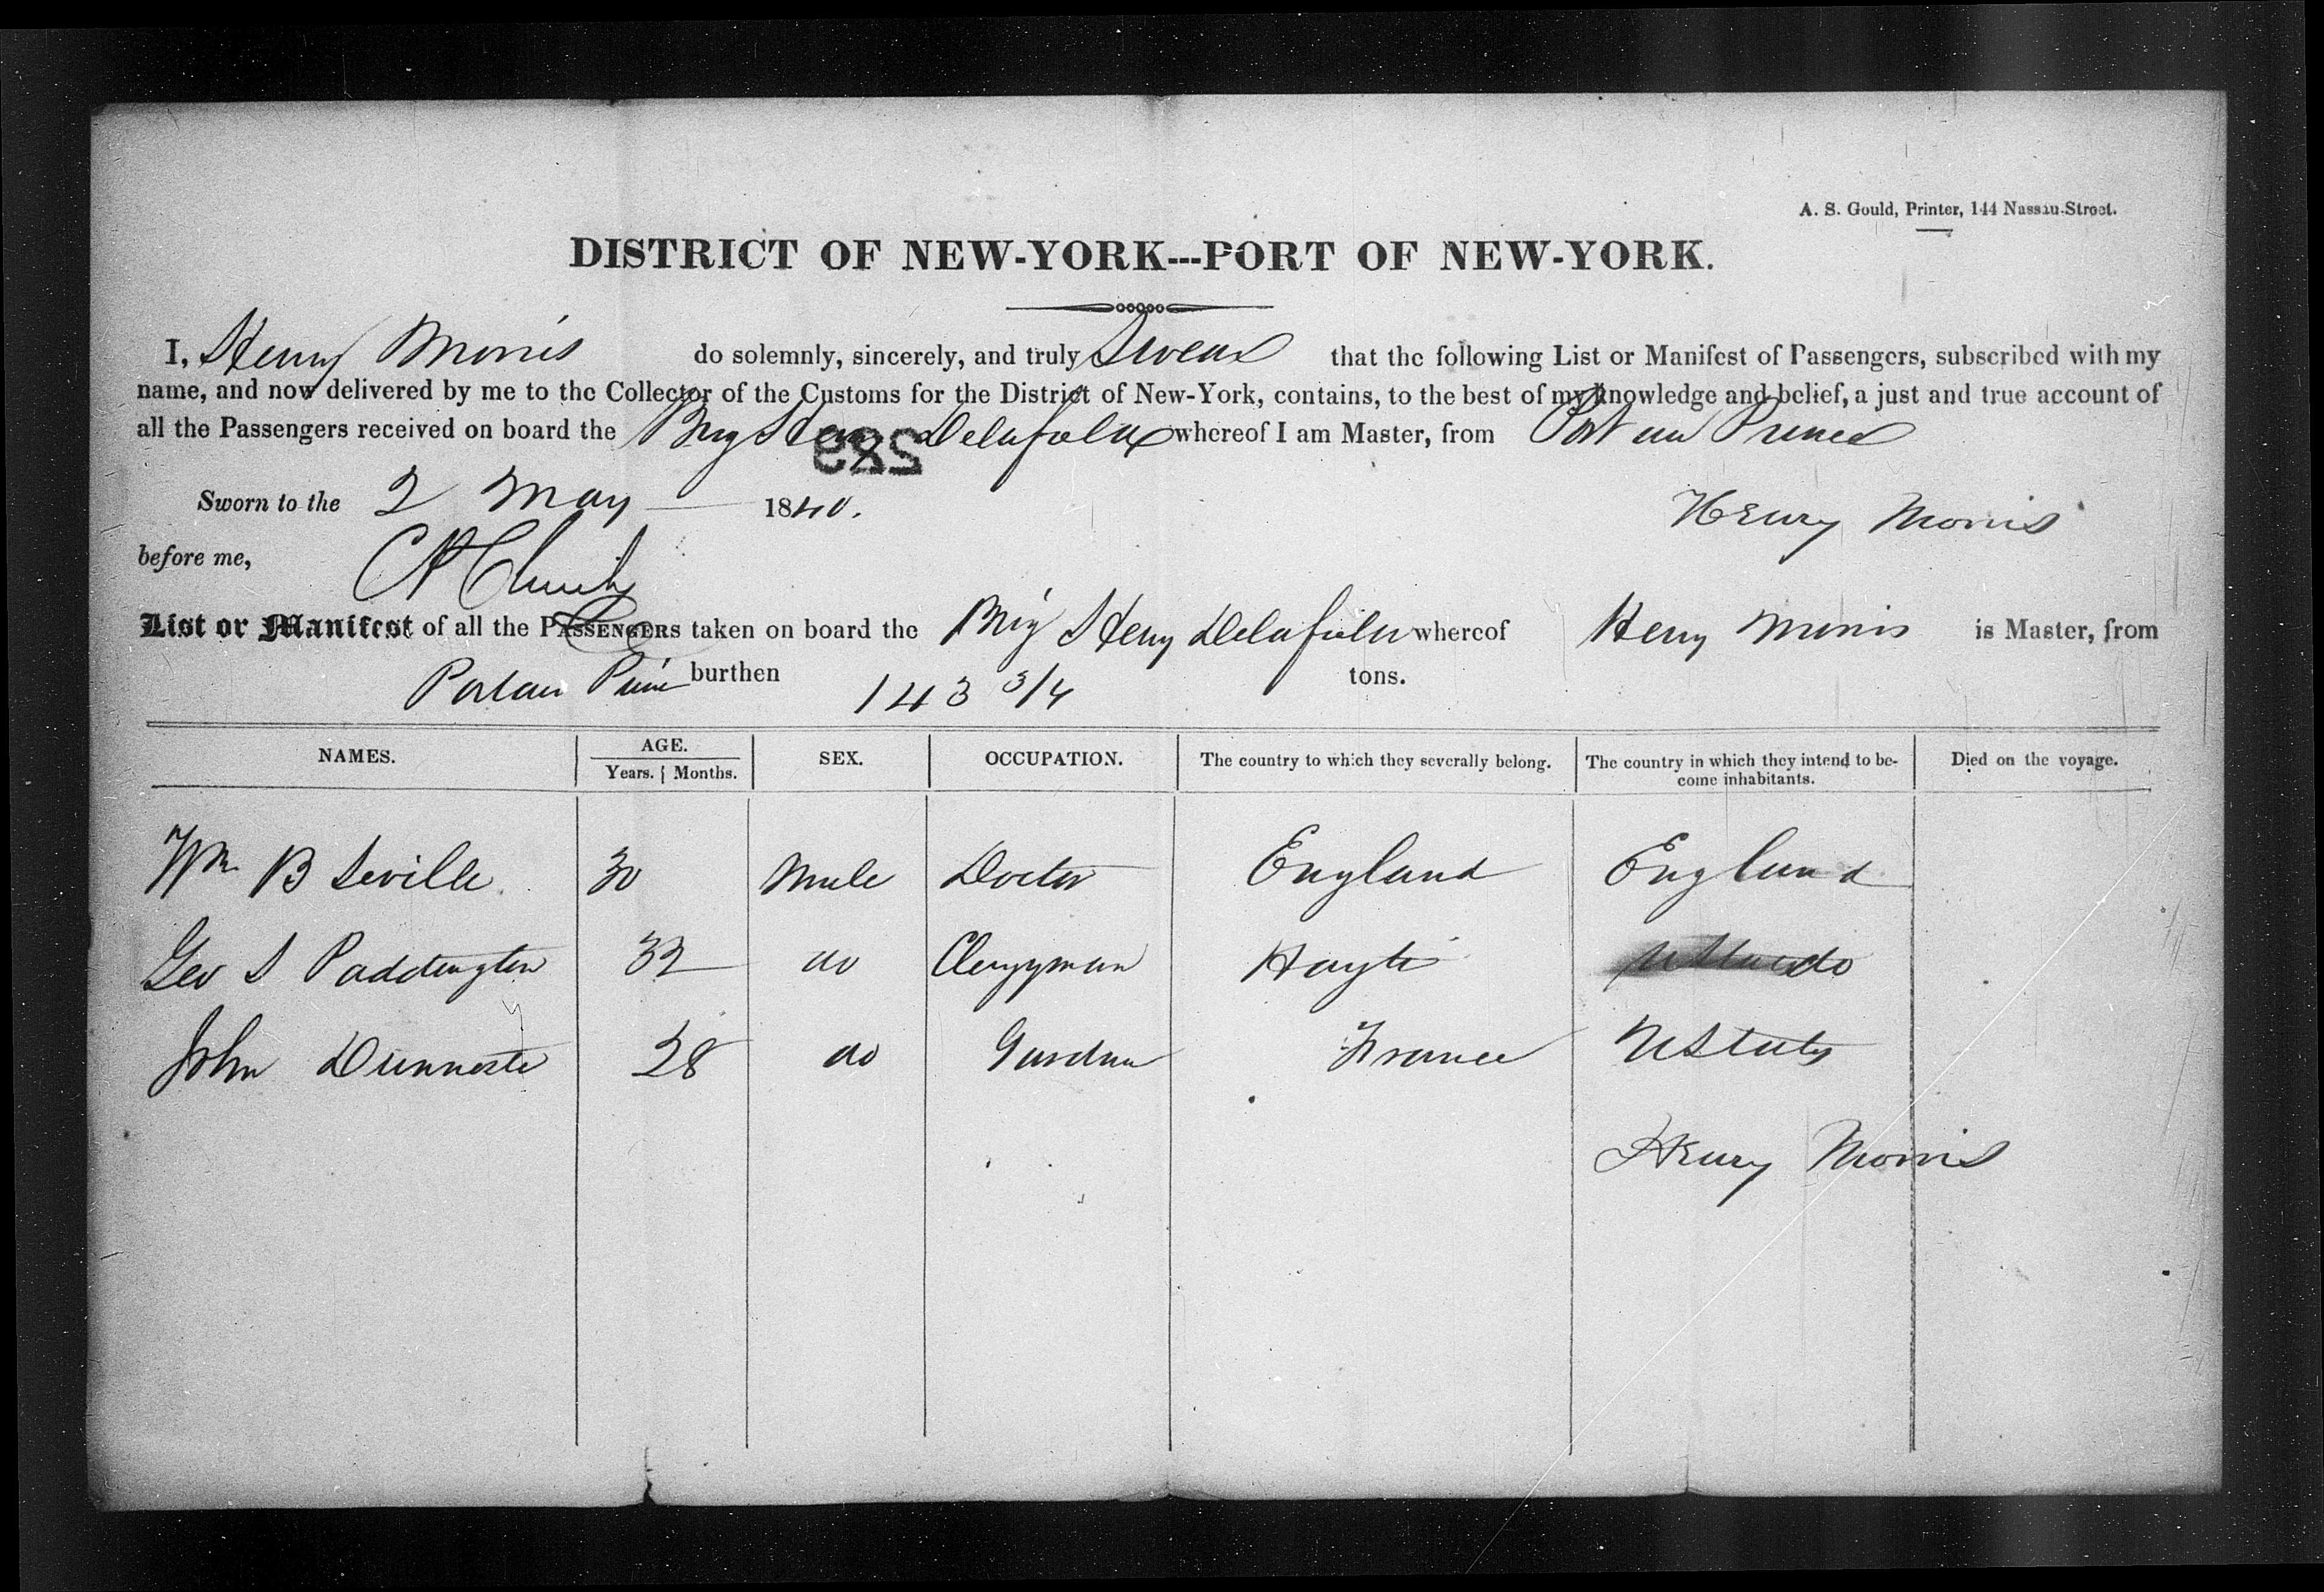 A. S. Gould, Printer, 144 Nassau-Street.
DISTRICT OF NEW-YORK---PORT OF NEW-YORK.
I, Henry Morris do solemnly, sincerely, and truly Swear that the following List or Manifest of Passengers, subscribed with my
name, and now delivered by me to the Collector of the Customs for the District of New-York, contains, to the best of my knowledge and belief, a just and true account of
all the Passengers received on board the Brig Henry Delafield whereof I am Master, from Port au Prince
282
Sworn to the 2 May 1840. Henry Morris
before me, Church
List or Manifest of all the PASSENGERS taken on board the Brig Henry Delafield whereof Henry Morris is Master, from
Port au Prin burthen 143 3/4 tons.
NAMES. AGE. Years. Months. SEX. OCCUPATION. The country to which they severally belong. The country in which they intend to be-come inhabitants. Died on the voyage.
Wm B Seville 30 Male Doctor England England
Geo S Paddington 32 do Clergyman Hayti do
John 28 do France UStates
Henry Morris